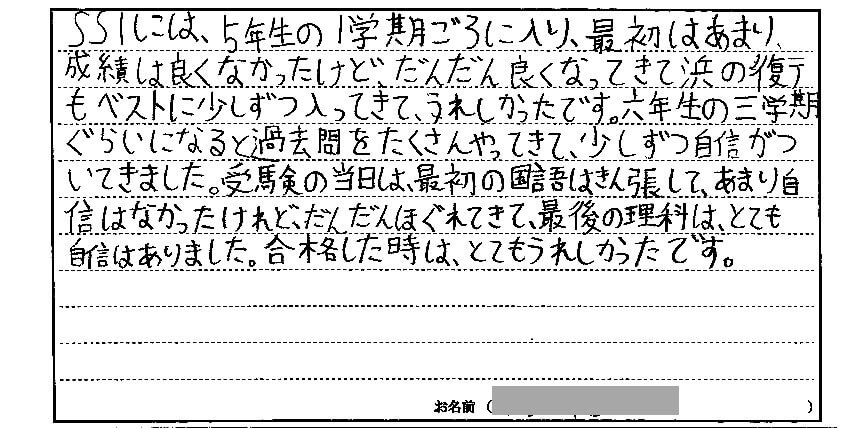 SSIには、5年生の1学期ごろに入り、最初はあまり、
成績は良くなかったけど、だんだん良くなってきて浜の復テ
もベストに少しずつ入ってきて、うれしかったです。六年生の三学期
ぐらいになると過去問をたくさんやってきて、少しずつ自信がつ
いてきました。受験の当日は、最初の国語はきん張して、あまり自
信はなかったけれど、だんだんほぐれてきて、最後の理科は、とても
自信はありました。合格した時は、とてもうれしかったです。
お名前 ( )